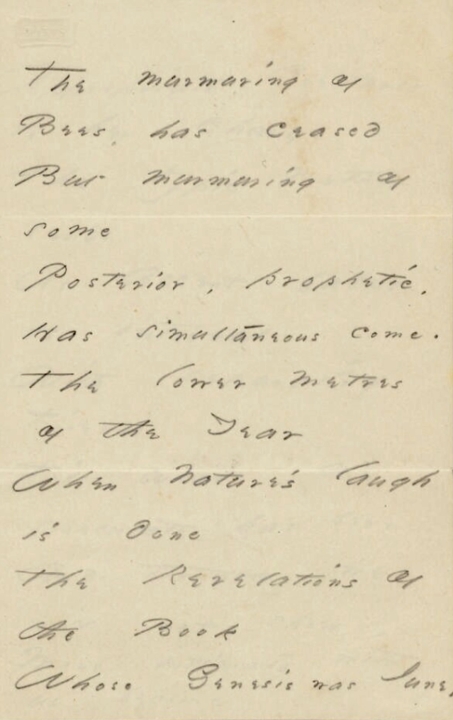 The murmuring of
Bees, has ceased
But murmuring of
some
Posterior, prophetic,
Has simultaneous come.
The lower metres
of the Year
When Nature's laugh
is done
The Revelations of
the Book
Whose Genesis was June,